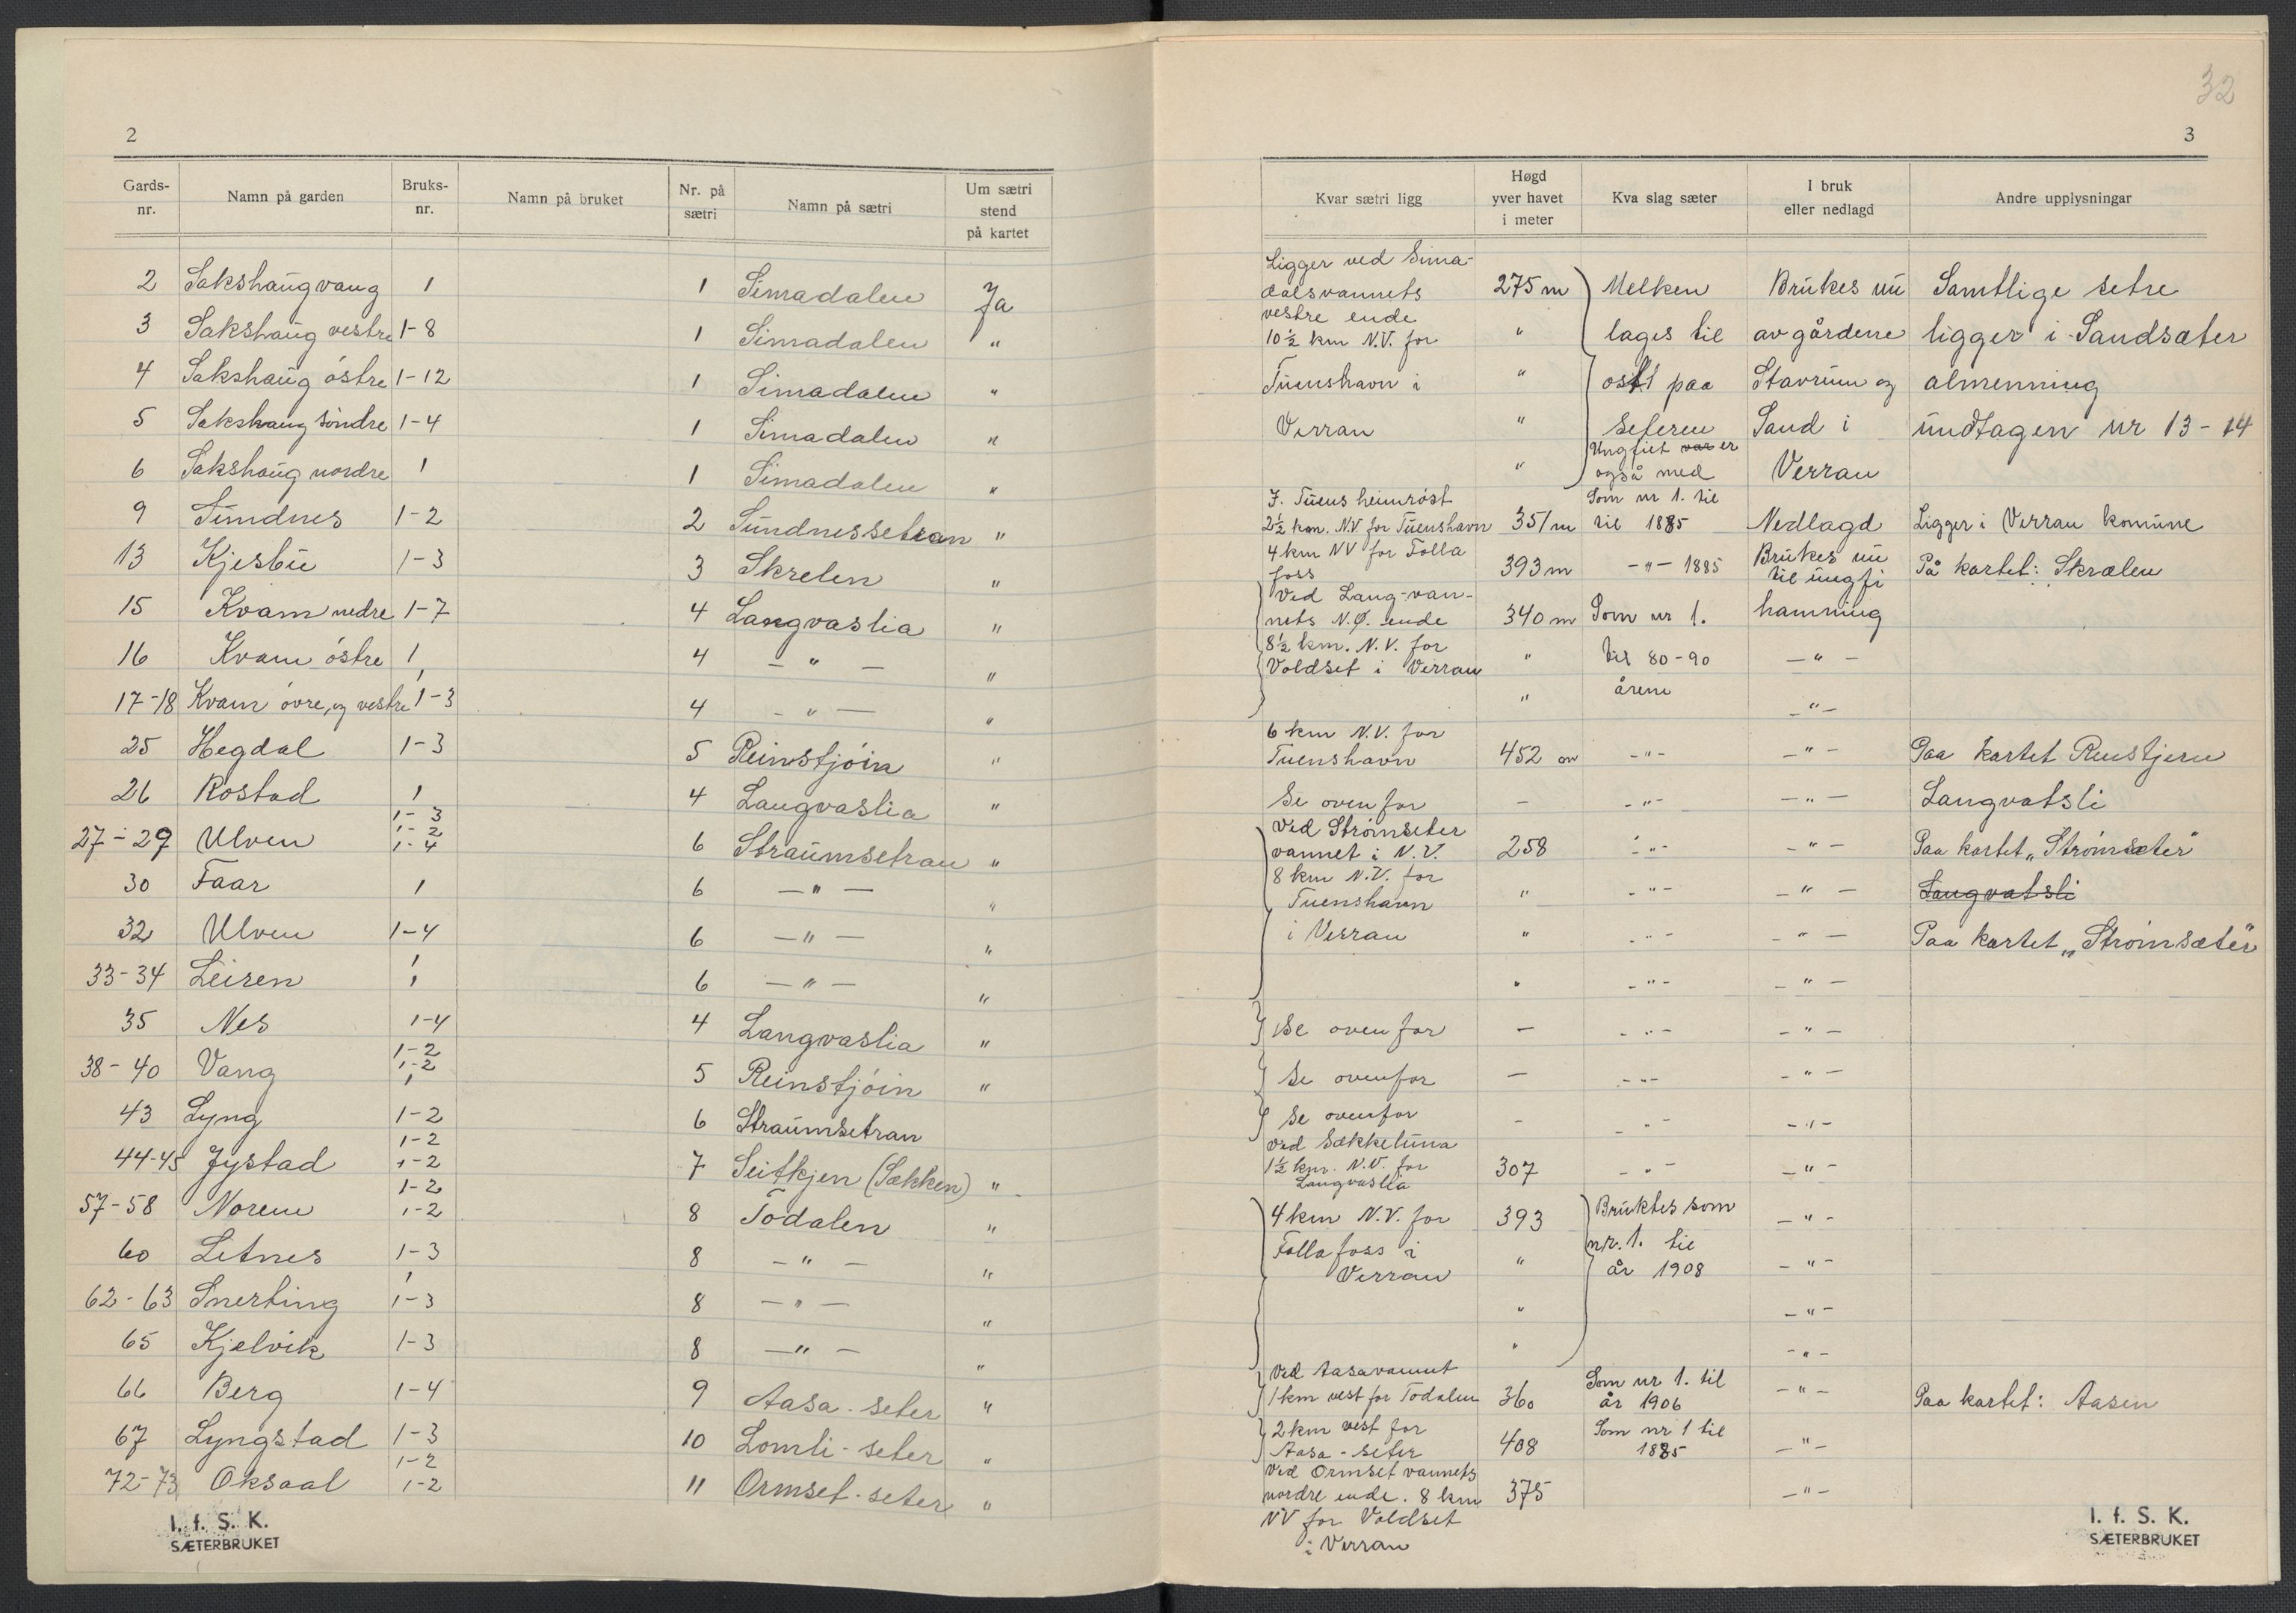 32
2
3
Gards-nr. Namn på garden Bruks-nr. Namn på bruket Nr. på sætri Namn på sætri Um sætri stend på kartet
2 Sakshaugvang 1 1 Simadalen Ja
3 Sakshaug vestre 1-8 1 Simadalen "
4 Sakshaug östre 1-12 1 Simadalen "
5 Sakshaug söndre 1-4 1 Simadalen "
6 Sakshaug nordre 1 1 Simadalen "
9 Sundnes 1-2 2 Sundnessetran "
13 Kjesbu 1-3 3 Skrelen "
15 Kvam nedre 1-7 4 Langvaslia "
16 Kvam östre 1 4 - " - "
17-18 Kvam övre, og vestre 1 1-3 4 - " - "
25 Hegdal 1-3 5 Reinstjöin "
26 Rostad 1 4 Langvaslia "
27-29 Ulven 1-3 1-2 1-4 6 Straumsetran "
30 Faar 1 6 - " - "
32 Ulven 1-4 6 - " - "
33-34 Leiren 1 1 6 - " - "
35 Nes 1-4 4 Langvaslia "
38-40 Vang 1-2 1-2 1 5 Reinstjöin "
43 Lyng 1-2 6 Straumsetran
44-45 Jystad 1-2 1-2 7 Seitkjen (Sekken) "
57-58 Norem 1-2 1-2 8 Todalen "
60 Letnes 1-3 8 - " - "
62-63 Snerting 1 1-3 8 - " - "
65 Kjelvik 1-3 8 - " - "
66 Berg 1-4 9 Aasa-seter "
67 Lyngstad 1-3 10 Lomli-seter "
72-73 Oksaal 1-2 1-2 11 Ormset-seter "
I. f. S. K.
SÆTERBRUKET
Kvar sætri ligg Høgd yver havet i meter Kva slag sæter I bruk eller nedlagd Andre upplysningar
Ligger ved Sima-
dalsvannets 275 m Melken Brukes nu Samtlige setre
vestre ende
10½ km N.V. for " lages til av gårdene ligger i Sandsæter
Tuenshavn i " ost paa Stavrum og almenning
Verran " Seteren Sand i undtagen nr 13-14
Ungfiet var er
" også med Verran
I. Tuens heimröst Som nr 1. til
2½ km. NV for Tuenshavn 351 m til 1885 Nedlagd Ligger i Verran komune
4 km NV for Folla Brukes nu
foss 393 m - " - 1885 til ungfi På kartet: Skrælen
Ved Lang-van-
nets N.Ø. ende 340 m Som nr 1. hamning
8½ km. N.V. for
Voldset i Verran " til 80-90 - " -
" årene - " -
6 km N.V. for
Tuenshavn 452 m - " - - " - Paa kartet Renstjern
Se oven for - - " - - " - Langvatsli
Ved Strömseter
vannet i N.V. 258 - " - - " - Paa kartet „Strömsæter"
8 km N.V. for
Tuenshavn " - " - - " - Langvatsli
i Verran " - " - - " - Paa kartet „Strömsæter"
" - " - - " -
Se oven for - - " - - " -
Se ovenfor - - " - - " -
Se ovenfor - - " - - " -
ved Sækketuna
1½ km. N.V. for 307 - " - - " -
Langvaslia
4 km N.V. for 393 Bruktes som - " -
Follafoss i " nr. 1. til - " -
Verran år 1908
" - " -
" - " -
Ved Aasavannet Som nr 1. til
1 km vest for Todalen 360 år 1906 - " - Paa kartet: Aasen
2 km vest for Som nr 1 til
Aasa-seter 408 1885 - " -
Ved Ormset vannets
nordre ende. 8 km 375 - " -
NV for Voldset
i Verran
I. f. S. K.
SÆTERBRUKET